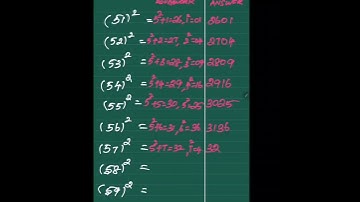 ANSWER
(51)² = 5²+1=26, 1²=01 2601
(52)² = 5²+2=27, 2²=04 2704
(53)² = 5²+3=28, 3²=09 2809
(54)² = 5²+4=29, 4²=16 2916
(55)² = 5²+5=30, 5²=25 3025
(56)² = 5²+6=31, 6²=36 3136
(57)² = 5²+7=32, 32
(58)² =
(59)² =